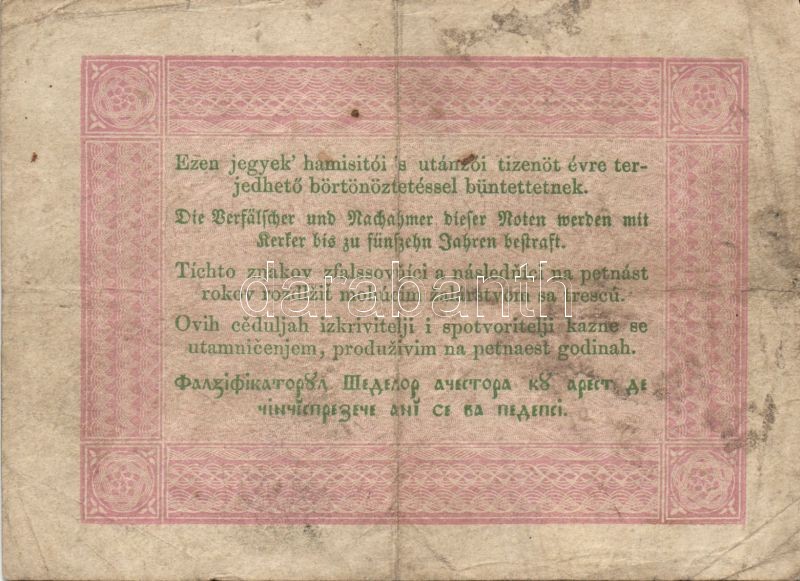 Ezen jegyek' hamisitói 's utánzói tizenöt évre ter-
jedhető börtönöztetéssel büntettetnek.
Die Verfälscher und Nachahmer dieser Noten werden mit
Kerker bis zu fünfzehn Jahren bestraft.
Tíchto znakov zfalssovníci a následníci na petnást
rokov rozdlžiť mohúcím žalárstvom sa trescú.
darabanth
Ovih céduljah izkrivitelji i spotvoritelji kazne se
utamničenjem, produživim na petnaest godinah.
Фалзіфікаторꙋл Шеделор ачестора кꙋ арест де
чінчіспрезече ані се ва педепсі.